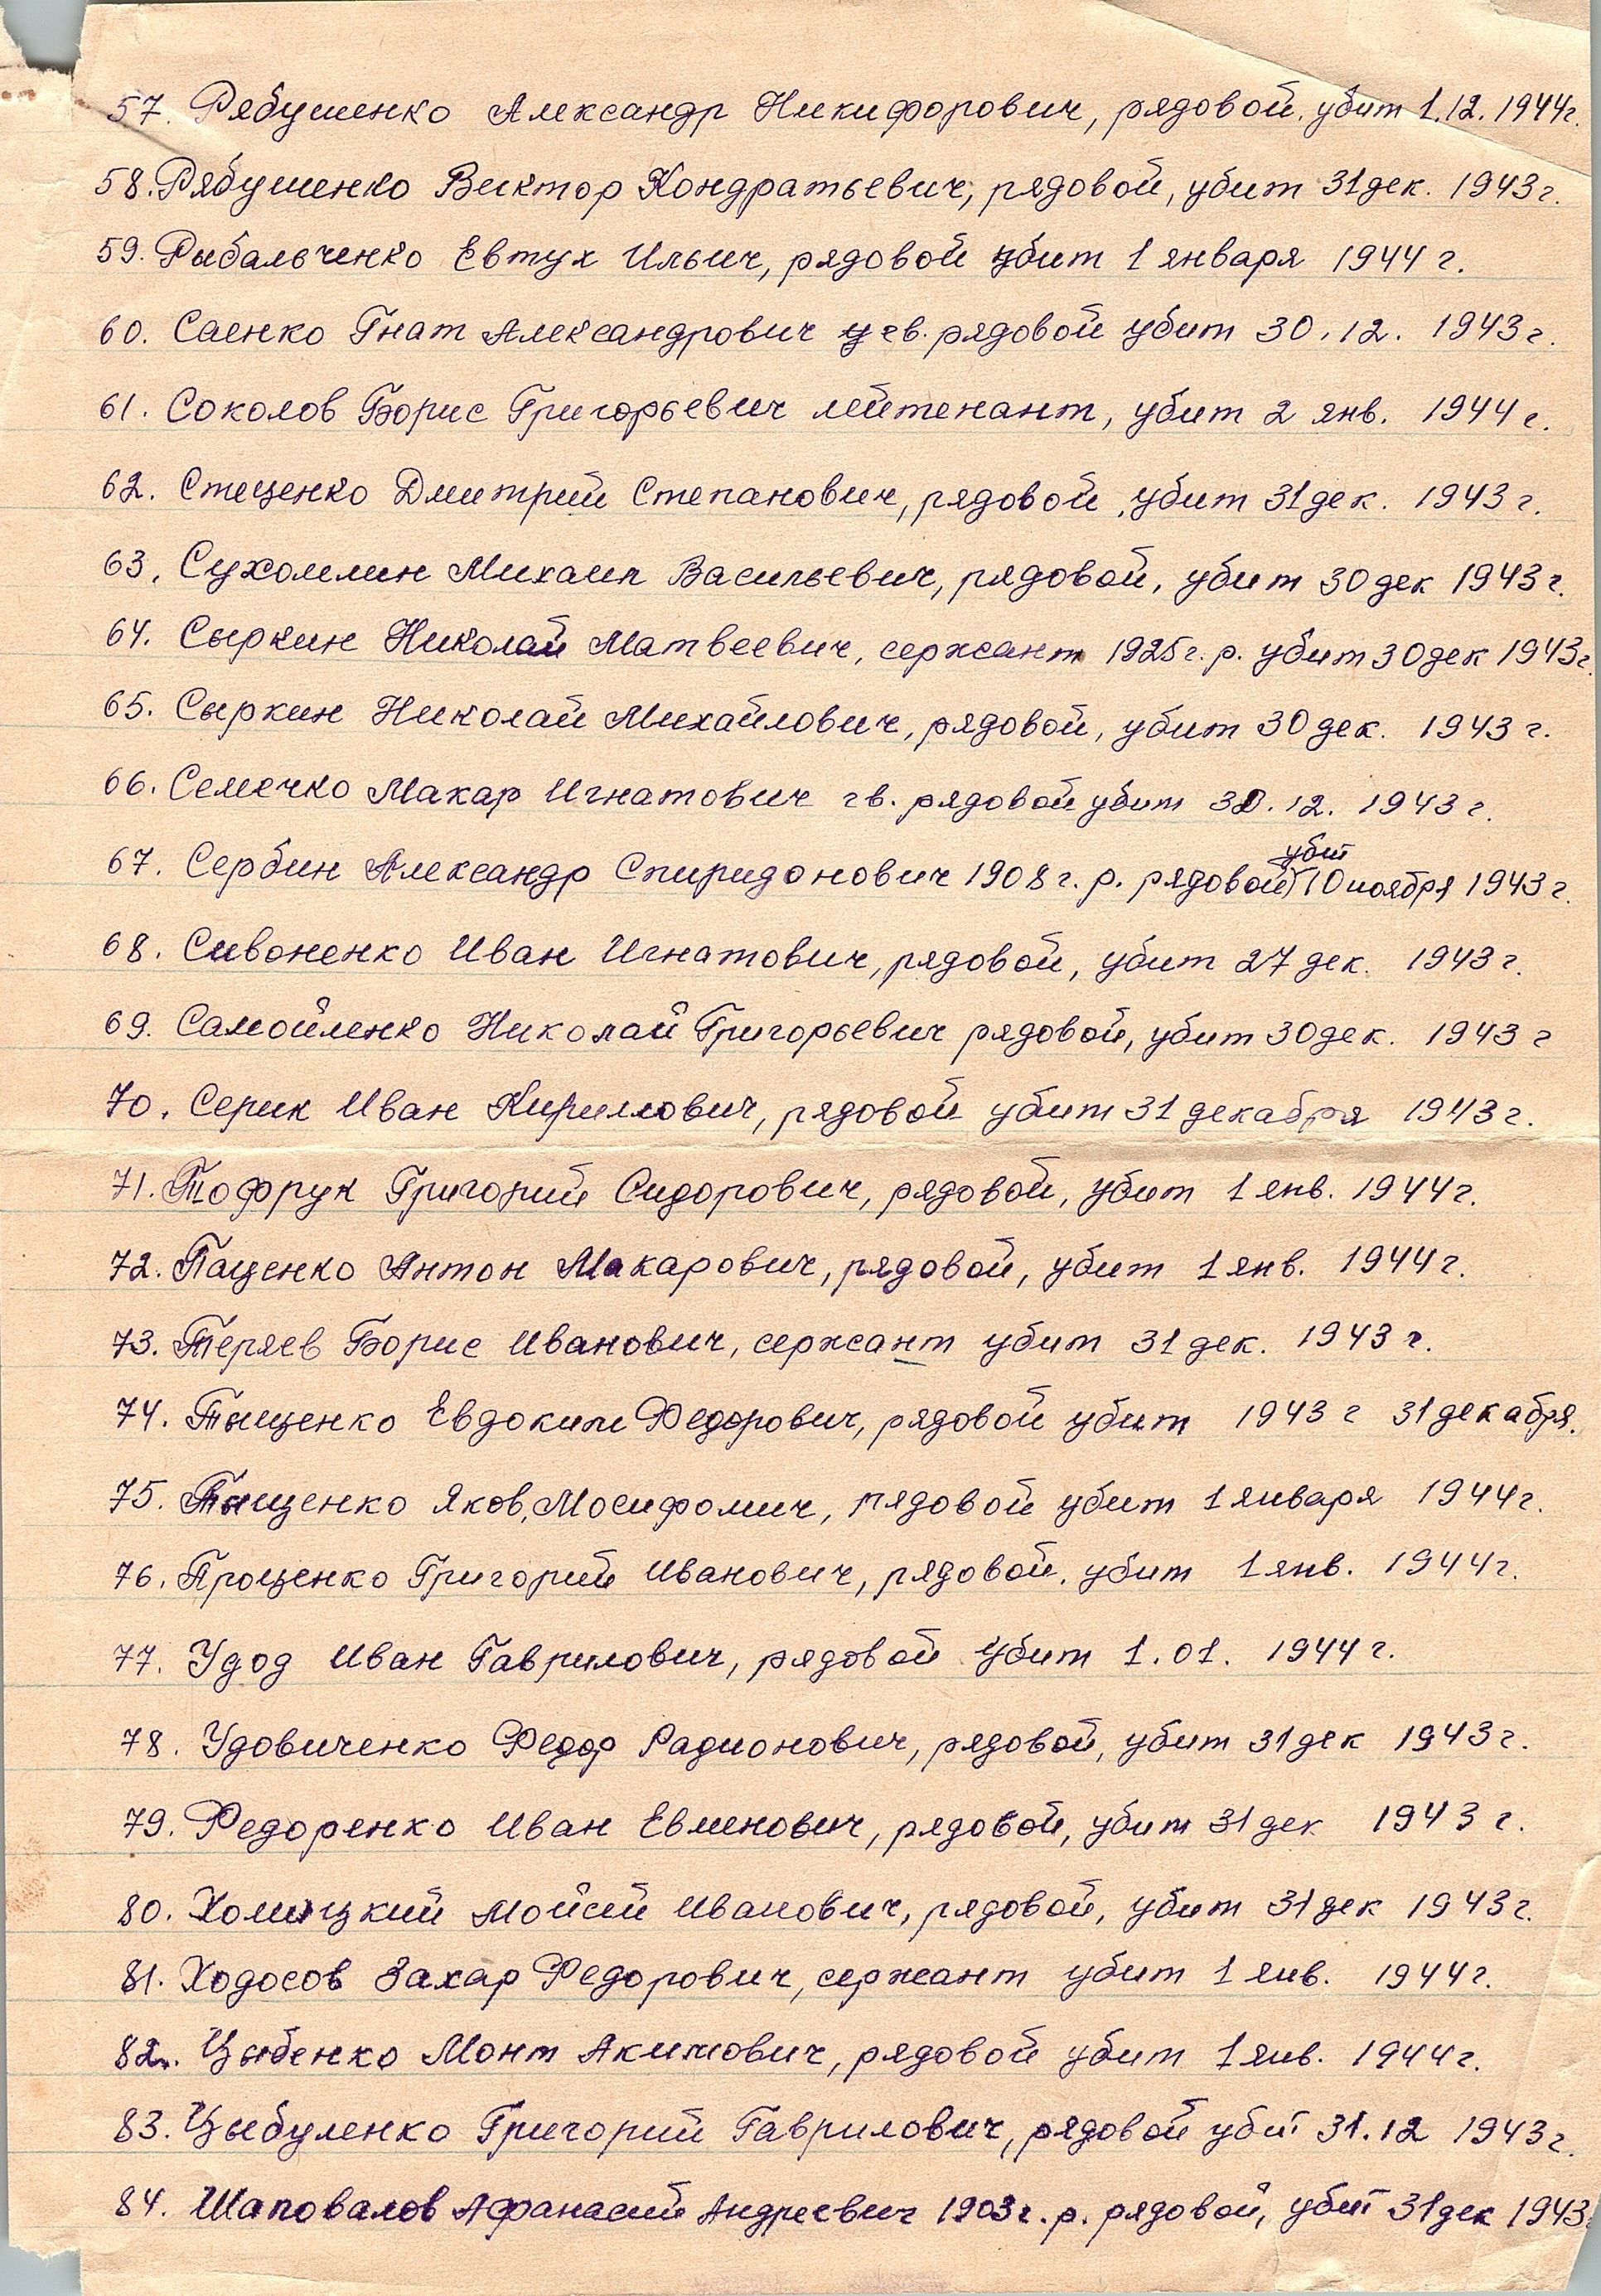 57. Рябушенко Александр Никифорович, рядовой, убит 1.12.1944г.
58. Рябушенко Виктор Кондратьевич, рядовой, убит 31 дек. 1943г.
59. Рыбальченко Евтух Ильич, рядовой убит 1 января 1944 г.
60. Саенко Гнат Александрович гв. рядовой убит 30.12. 1943г.
61. Соколов Борис Григорьевич лейтенант, убит 2 янв. 1944г.
62. Стеценко Дмитрий Степанович, рядовой, убит 31 дек. 1943 г.
63. Сухомлин Михаил Васильевич, рядовой, убит 30 дек 1943г.
64. Сыркин Николай Матвеевич, сержант 1925г.р. убит 30 дек 1943г.
65. Сыркин Николай Михайлович, рядовой, убит 30 дек. 1943 г.
66. Семечко Макар Игнатович гв. рядовой убит 30.12. 1943 г.
67. Сербин Александр Спиридонович 1908 г.р. рядовой убит 10 ноября 1943 г.
68. Сивоненко Иван Игнатович, рядовой, убит 27 дек. 1943 г.
69. Самойленко Николай Григорьевич рядовой, убит 30 дек. 1943 г
70. Серик Иван Кириллович, рядовой убит 31 декабря 1943 г.
71. Тофрук Григорий Сидорович, рядовой, убит 1 янв. 1944 г.
72. Пащенко Антон Макарович, рядовой, убит 1 янв. 1944 г.
73. Теряев Борис Иванович, сержант убит 31 дек. 1943 г.
74. Тыщенко Евдоким Федорович, рядовой убит 1943 г 31 декабря.
75. Тыщенко Яков, рядовой убит 1 января 1944г.
76. Проценко Григорий Иванович, рядовой, убит 1 янв. 1944г.
77. Удод Иван Гаврилович, рядовой убит 1.01. 1944 г.
78. Удовиченко Федор Радионович, рядовой, убит 31 дек 1943 г.
79. Федоренко Иван Евменович, рядовой, убит 31 дек 1943 г.
80. Мойсей Иванович, рядовой, убит 31 дек 1943г.
81. Ходосов Захар Федорович, сержант убит 1 янв. 1944г.
82. Цыбенко Монт Акимович, рядовой убит 1 янв. 1944г.
83. Цыбуленко Григорий Гаврилович, рядовой убит 31.12 1943г.
84. Шаповалов Афанасий Андреевич 1903г.р. рядовой, убит 31 дек 1943г